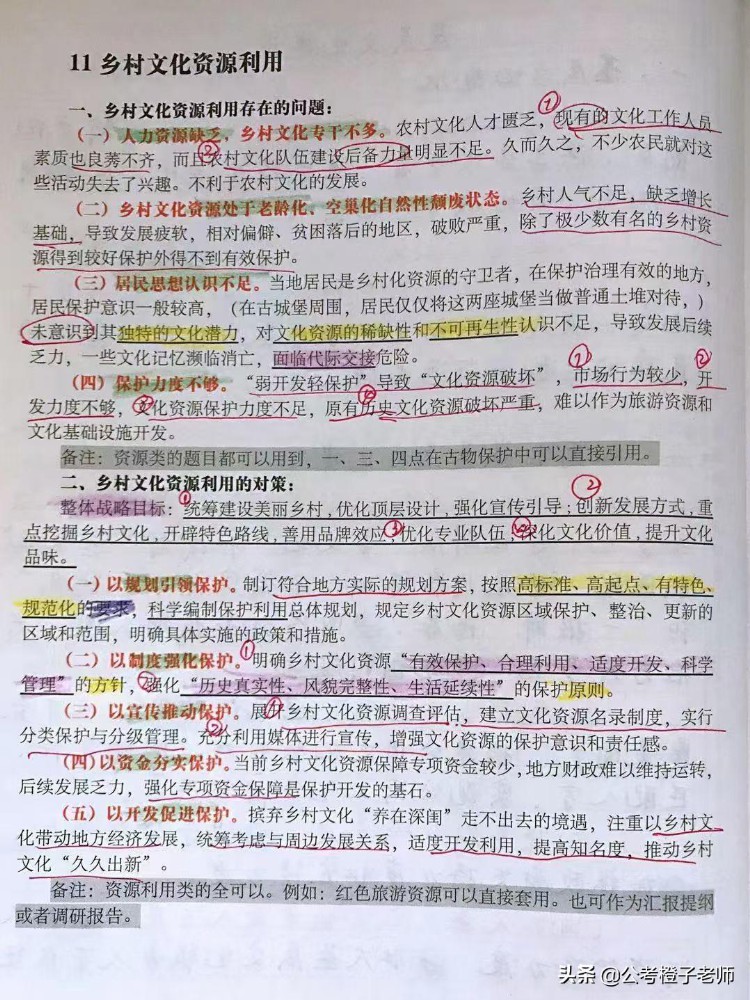 11 乡村文化资源利用
一、乡村文化资源利用存在的问题：
（一）人力资源缺乏，乡村文化专干不多。农村文化人才匮乏，①现有的文化工作人员
素质也良莠不齐，而且②农村文化队伍建设后备力量明显不足。久而久之，不少农民就对这
些活动失去了兴趣。不利于农村文化的发展。
（二）乡村文化资源处于老龄化、空巢化自然性颓废状态。乡村人气不足，缺乏增长
基础，导致发展疲软，相对偏僻、贫困落后的地区，破败严重，除了极少数有名的乡村资
源得到较好保护外得不到有效保护。
（三）居民思想认识不足。当地居民是乡村化资源的守卫者，在保护治理有效的地方，
居民保护意识一般较高，（在古城堡周围，居民仅仅将这两座城堡当做普通土堆对待，）
未意识到其独特的文化潜力，对文化资源的稀缺性和不可再生性认识不足，导致发展后续
乏力，一些文化记忆濒临消亡，面临代际交接危险。
（四）保护力度不够。“弱开发轻保护”导致“文化资源破坏”，①市场行为较少，②开
发力度不够，③文化资源保护力度不足，④原有历史文化资源破坏严重，难以作为旅游资源和
文化基础设施开发。
备注：资源类的题目都可以用到，一、三、四点在古物保护中可以直接引用。
二、乡村文化资源利用的对策：
整体战略目标：①统筹建设美丽乡村，优化顶层设计，强化宣传引导；②创新发展方式，重
点挖掘乡村文化，开辟特色路线，善用品牌效应；③优化专业队伍；④深化文化价值，提升文化
品味。
（一）以规划引领保护。制订符合地方实际的规划方案，按照高标准、高起点、有特色、
规范化的要求，科学编制保护利用总体规划，规定乡村文化资源区域保护、整治、更新的
区域和范围，明确具体实施的政策和措施。
（二）以制度强化保护。①明确乡村文化资源“有效保护、合理利用、适度开发、科学
管理”的方针，②强化“历史真实性、风貌完整性、生活延续性”的保护原则。
（三）以宣传推动保护。①展开乡村文化资源调查评估，建立文化资源名录制度，实行
分类保护与分级管理。②充分利用媒体进行宣传，增强文化资源的保护意识和责任感。
（四）以资金夯实保护。当前乡村文化资源保障专项资金较少，地方财政难以维持运转，
后续发展乏力，强化专项资金保障是保护开发的基石。
（五）以开发促进保护。摈弃乡村文化“养在深闺”走不出去的境遇，注重以乡村文
化带动地方经济发展，统筹考虑与周边发展关系，适度开发利用，提高知名度，推动乡村
文化“久久出新”。
备注：资源利用类的全可以。例如：红色旅游资源可以直接套用。也可作为汇报提纲
或者调研报告。
头条 @公考橙子老师